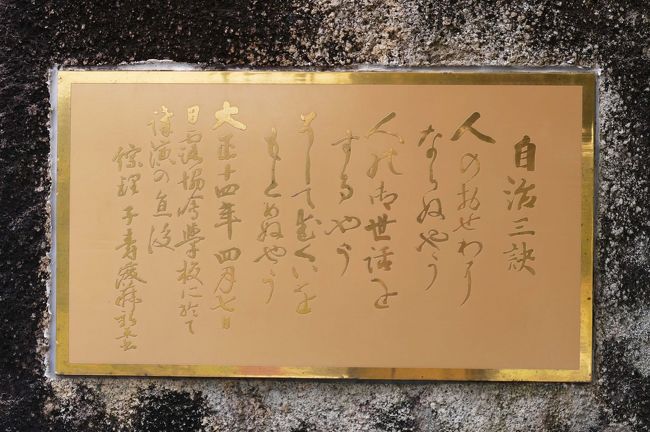 自治三訣
人のおせわり
ならぬやう
人の御世話を
するやう
そしてむくいを
もとめぬやう
大正十四年四月七日
日露協會學校に於て
講演の
總裁子爵後藤新平